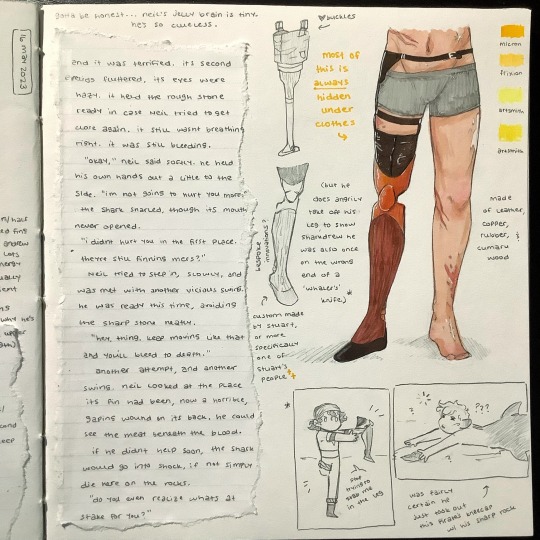 gotta be honest... neil's jelly brain is tiny.
he's so clueless.
16 mar 2023
and it was terrified. its second
eyelids fluttered, its eyes were
hazy. it held the rough stone
ready in case neil tried to get
close again. it still wasnt breathing
right. it was still bleeding.
"okay," neil said softly. he held
his own hands out a little to the
side. "im not going to hurt you more."
the shark snarled, though its mouth
never opened.
"i didnt hurt you in the first place.
theyre still finning mers?"
neil tried to step in, slowly, and
was met with another vicious swing.
he was ready this time, avoiding
the sharp stone neatly.
"hey, thing, keep moving like that
and youll bleed to death."
another attempt, and another
swing. neil looked at the place
its fin had been, now a horrible,
gaping wound on its back. he could
see the meat beneath the blood.
if he didnt help soon, the shark
would go into shock, if not simply
die here on the rocks.
"do you even realize whats at
stake for you?"
buckles
most of
this is
always
hidden
under
clothes
(but he
does angrily
take off his
leg to show
sharkdrew he
was also once
on the wrong
end of a
'whalers'
knife)*
bespoke innovations?
custom made
by stuart,
or more
specifically
one of
stuart's
people
micron
frixion
artsmith
artsmith
made
of leather,
copper,
rubber, &
cumaru
wood
*
stop
trying to
stab me
in the leg
???
was fairly
certain he
just took out
this pirate's kneecap
w/ his sharp rock
n/ half
ed fing
andrew
lots
nergy
ually
ient
why he's
upper